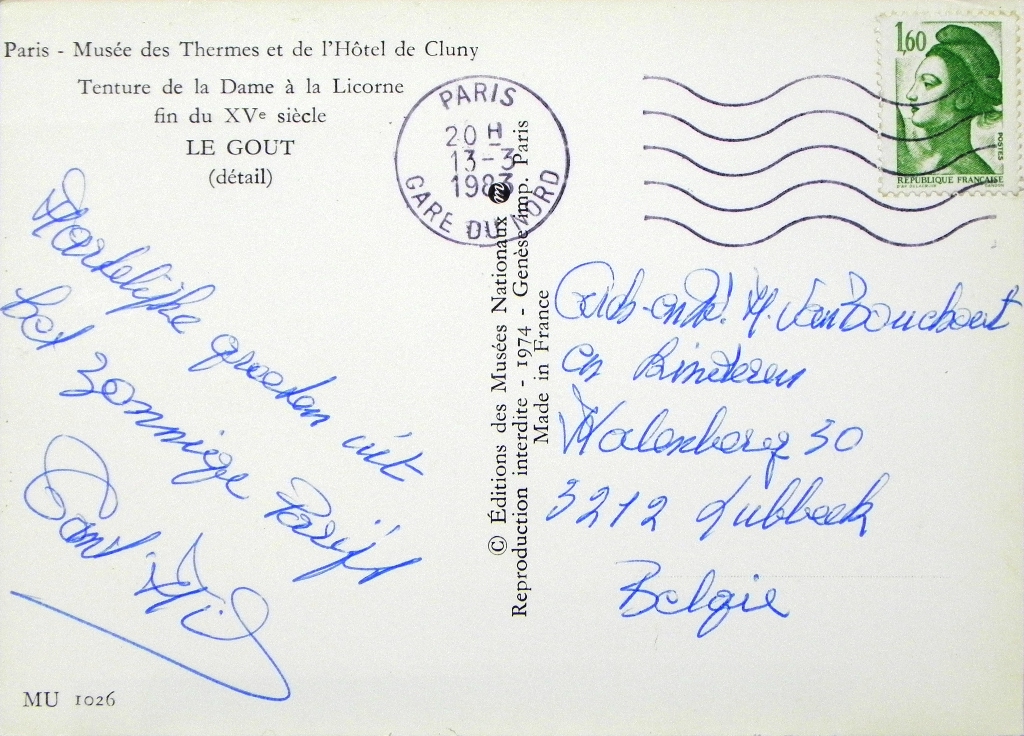 Paris - Musée des Thermes et de l'Hôtel de Cluny
Tenture de la Dame à la Licorne
fin du XVe siècle
LE GOUT
(détail)
Hartelijke groeten uit
het zonnige Parijs
MU 1026
© Éditions des Musées Nationaux m
Reproduction interdite - 1974 - Genèse imp. Paris
Made in France
PARIS
20 H
13-3
1983
GARE DU NORD
1,60
POSTES
REPUBLIQUE FRANÇAISE
M. Van Bouchout
en kinderen
Molenberg 30
3212 Lubbeek
Belgie